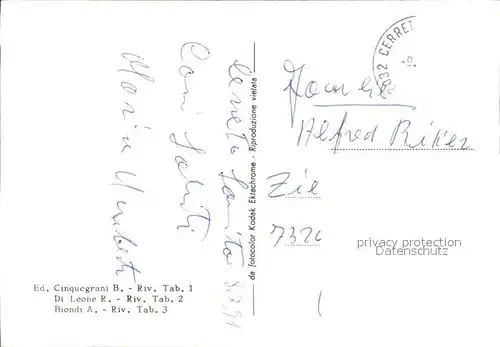 Cerreto Sannita 8.7.91
Cari Saluti
Maria Umberto
de fotocolor Kodak Ektachrome - Riproduzione vietata
032 CERRET
-9.
Familie
Alfred Riker
Zie
732
privacy protection
Datenschutz
Ed. Cinquegrani B. - Riv. Tab. 1
Di Leone R. - Riv. Tab. 2
Biondi A. - Riv. Tab. 3